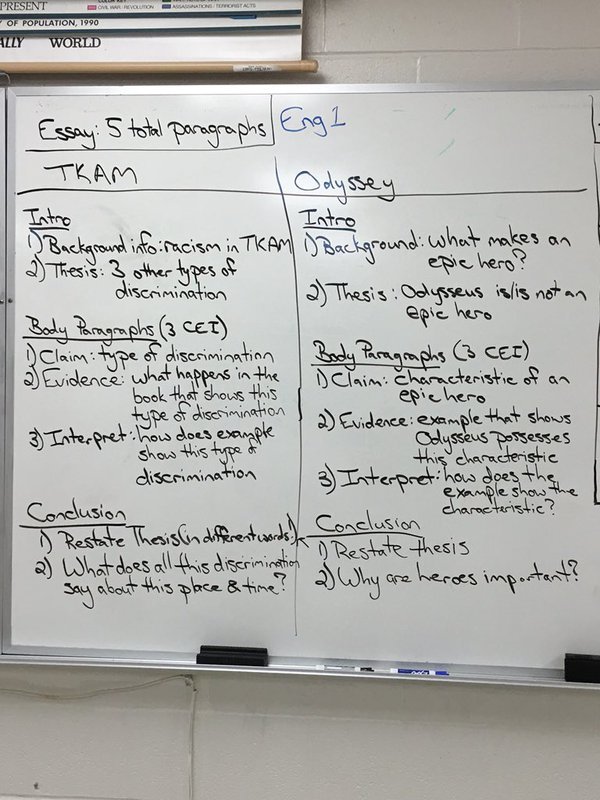 PRESENT
CIVIL WAR / REVOLUTION
ASSASSINATIONS / TERRORIST ACTS
Y OF POPULATION, 1990
ALLY WORLD
Essay: 5 total paragraphs
Eng 1
TKAM
Intro
1) Background info: racism in TKAM
2) Thesis: 3 other types of
discrimination
Body Paragraphs (3 CEI)
1) Claim: type of discrimination
2) Evidence: what happens in the
book that shows this
type of discrimination
3) Interpret: how does example
show this type of
discrimination
Conclusion
1) Restate Thesis (in different words!)
2) What does all this discrimination
say about this place & time?
Odyssey
Intro
1) Background: what makes an
epic hero?
2) Thesis: Odysseus is/is not an
epic hero
Body Paragraphs (3 CEI)
1) Claim: characteristic of an
epic hero
2) Evidence: example that shows
Odysseus possesses
this characteristic
3) Interpret: how does the
example show the
characteristic?
Conclusion
1) Restate thesis
2) Why are heroes important?